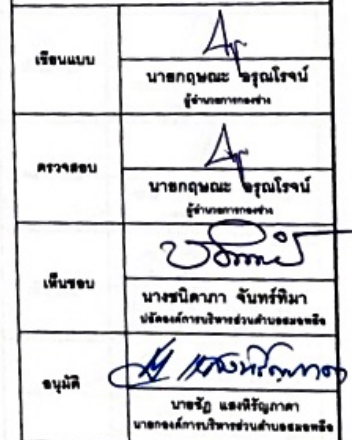 เขียนแบบ
นายกฤษณะ อรุณโรจน์
ผู้อำนวยการกองช่าง
ตรวจสอบ
นายกฤษณะ อรุณโรจน์
ผู้อำนวยการกองช่าง
เห็นชอบ
นางชนิดาภา จันทร์ทิมา
ปลัดองค์การบริหารส่วนตำบล
อนุมัติ
นายรัฏ แสงหิรัญภาดา
นายกองค์การบริหารส่วนตำบล